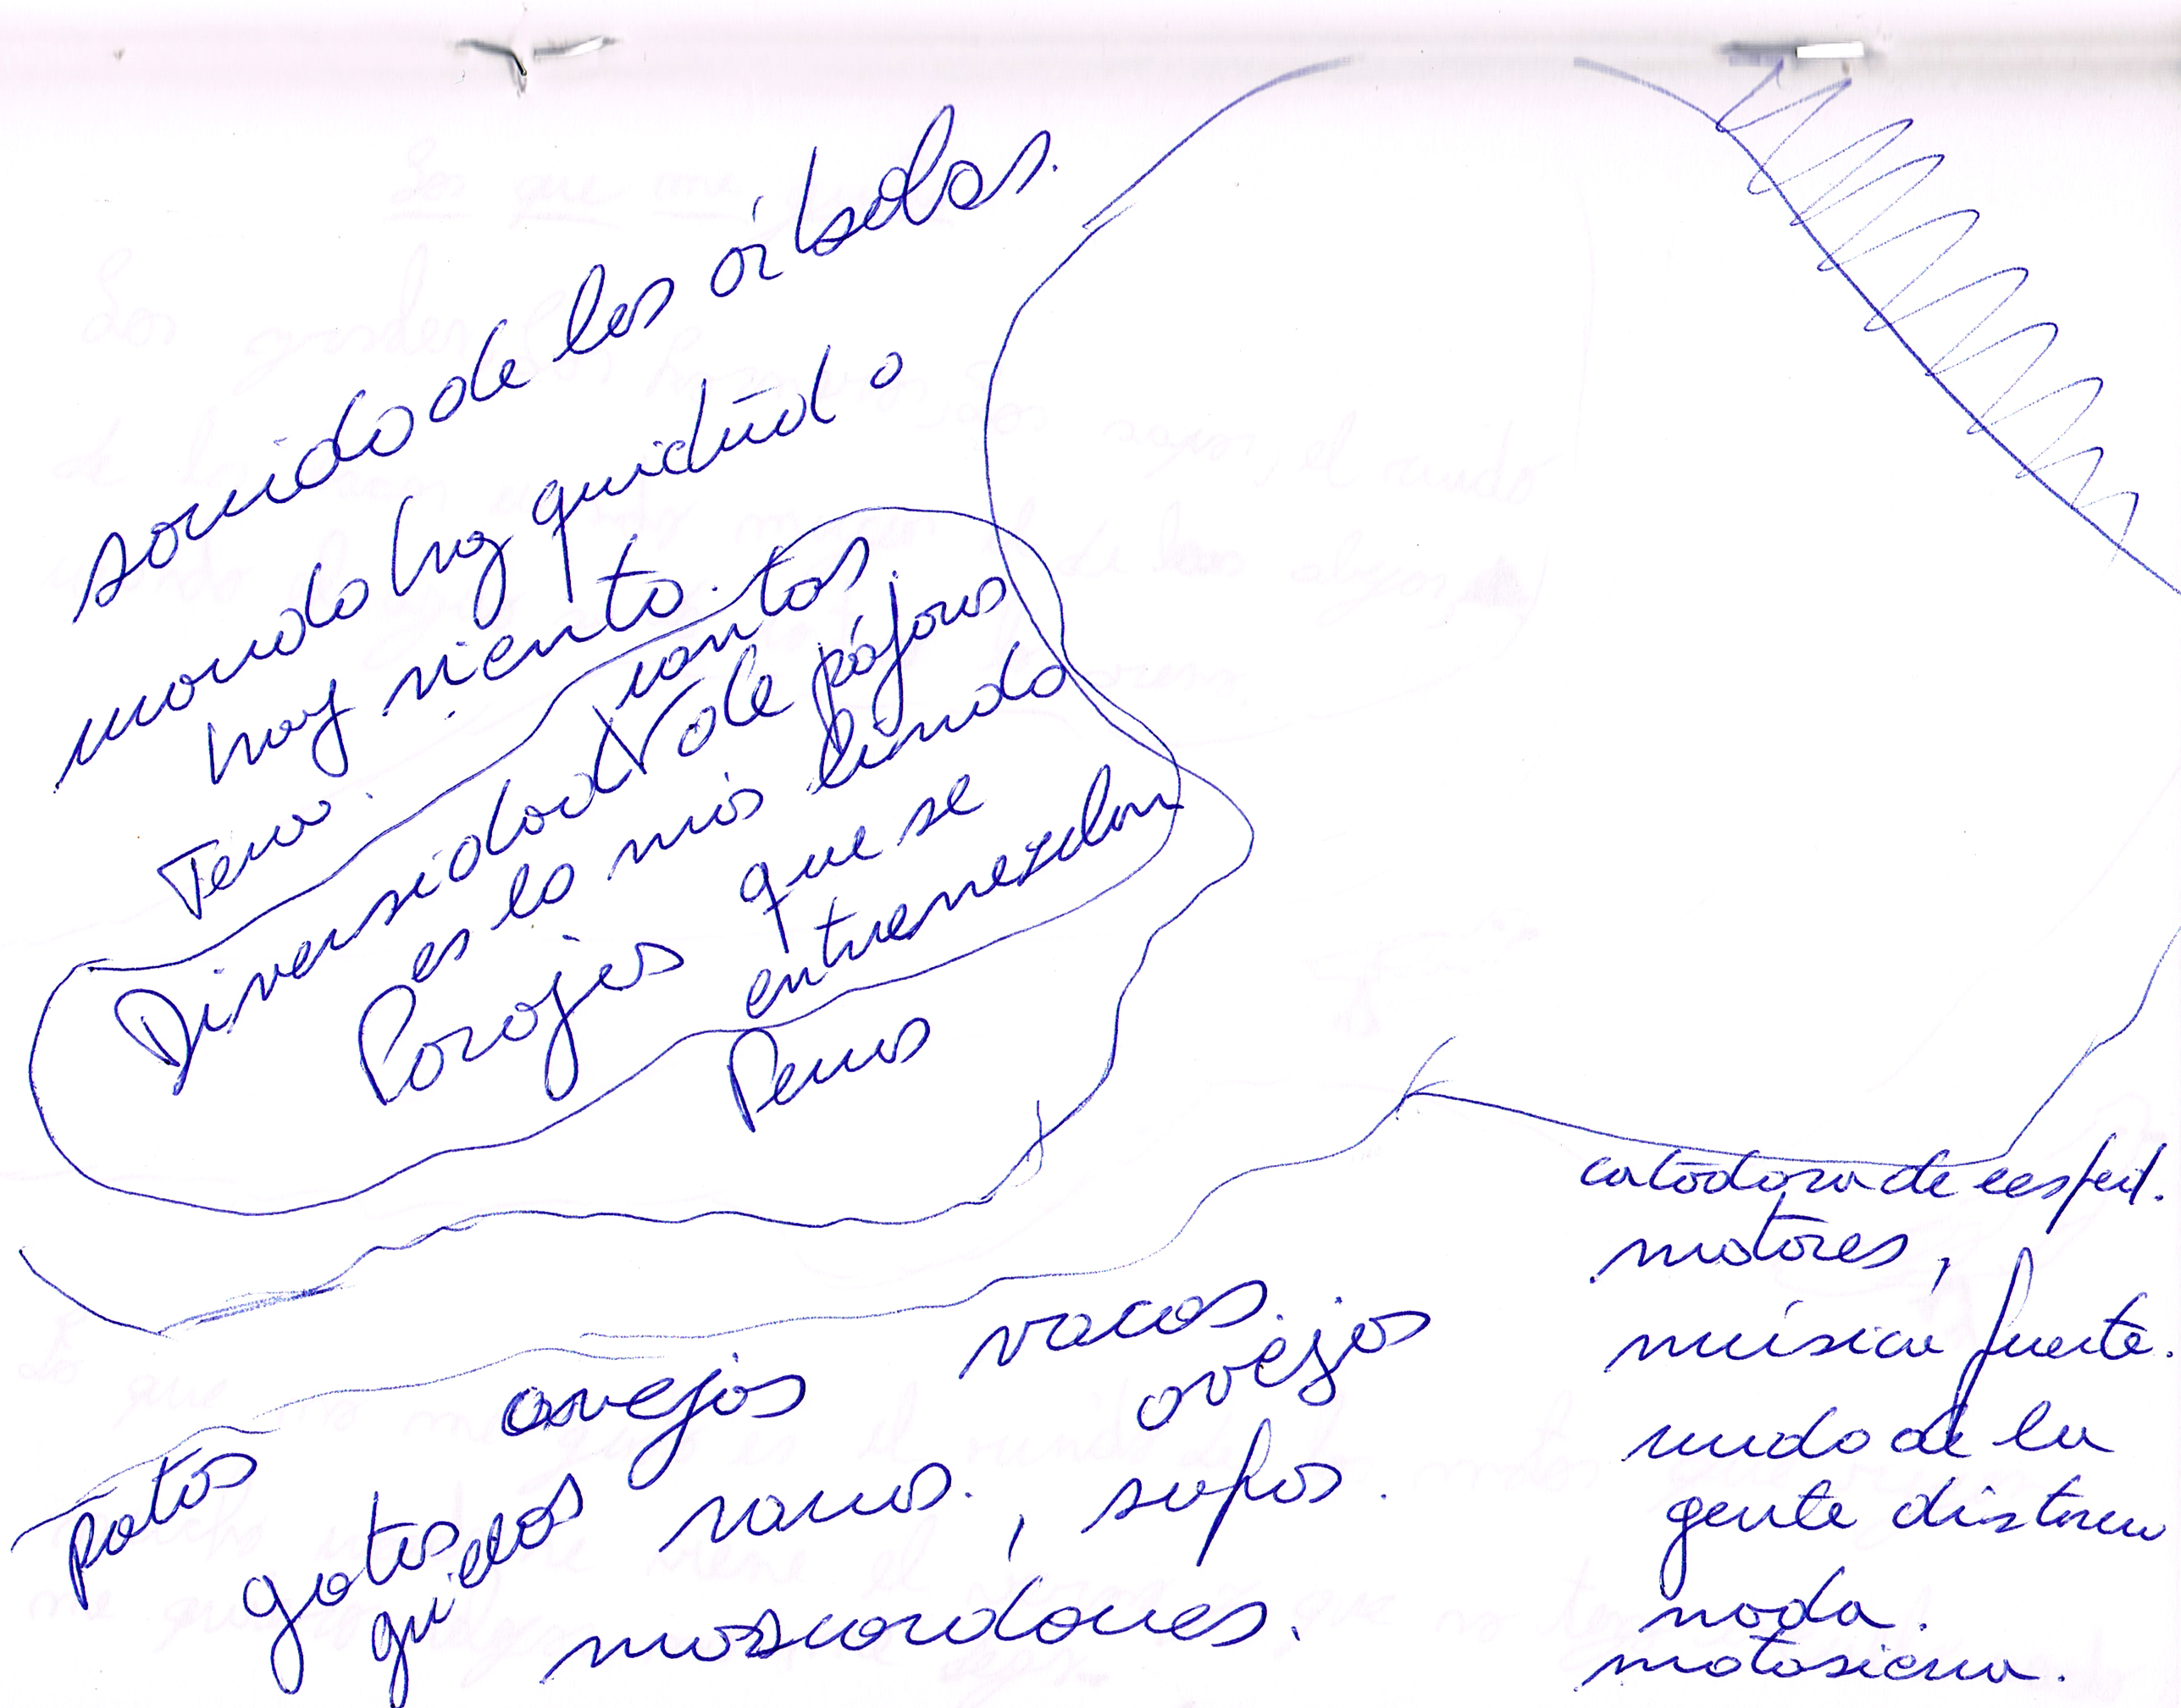 sonido de los árboles.
cuando hay quietud o
hay viento.
Tero.
Diversidad cantos de pájaros
es lo más lindo
Parajes que se
entremezclan
Perros
vacas.
ovejas
ovejas
patos
gatos
ranas, sapos.
moscardones.
cortadora de cesped.
motores,
música fuerte.
ruido de la
gente
nada.
motosierra.